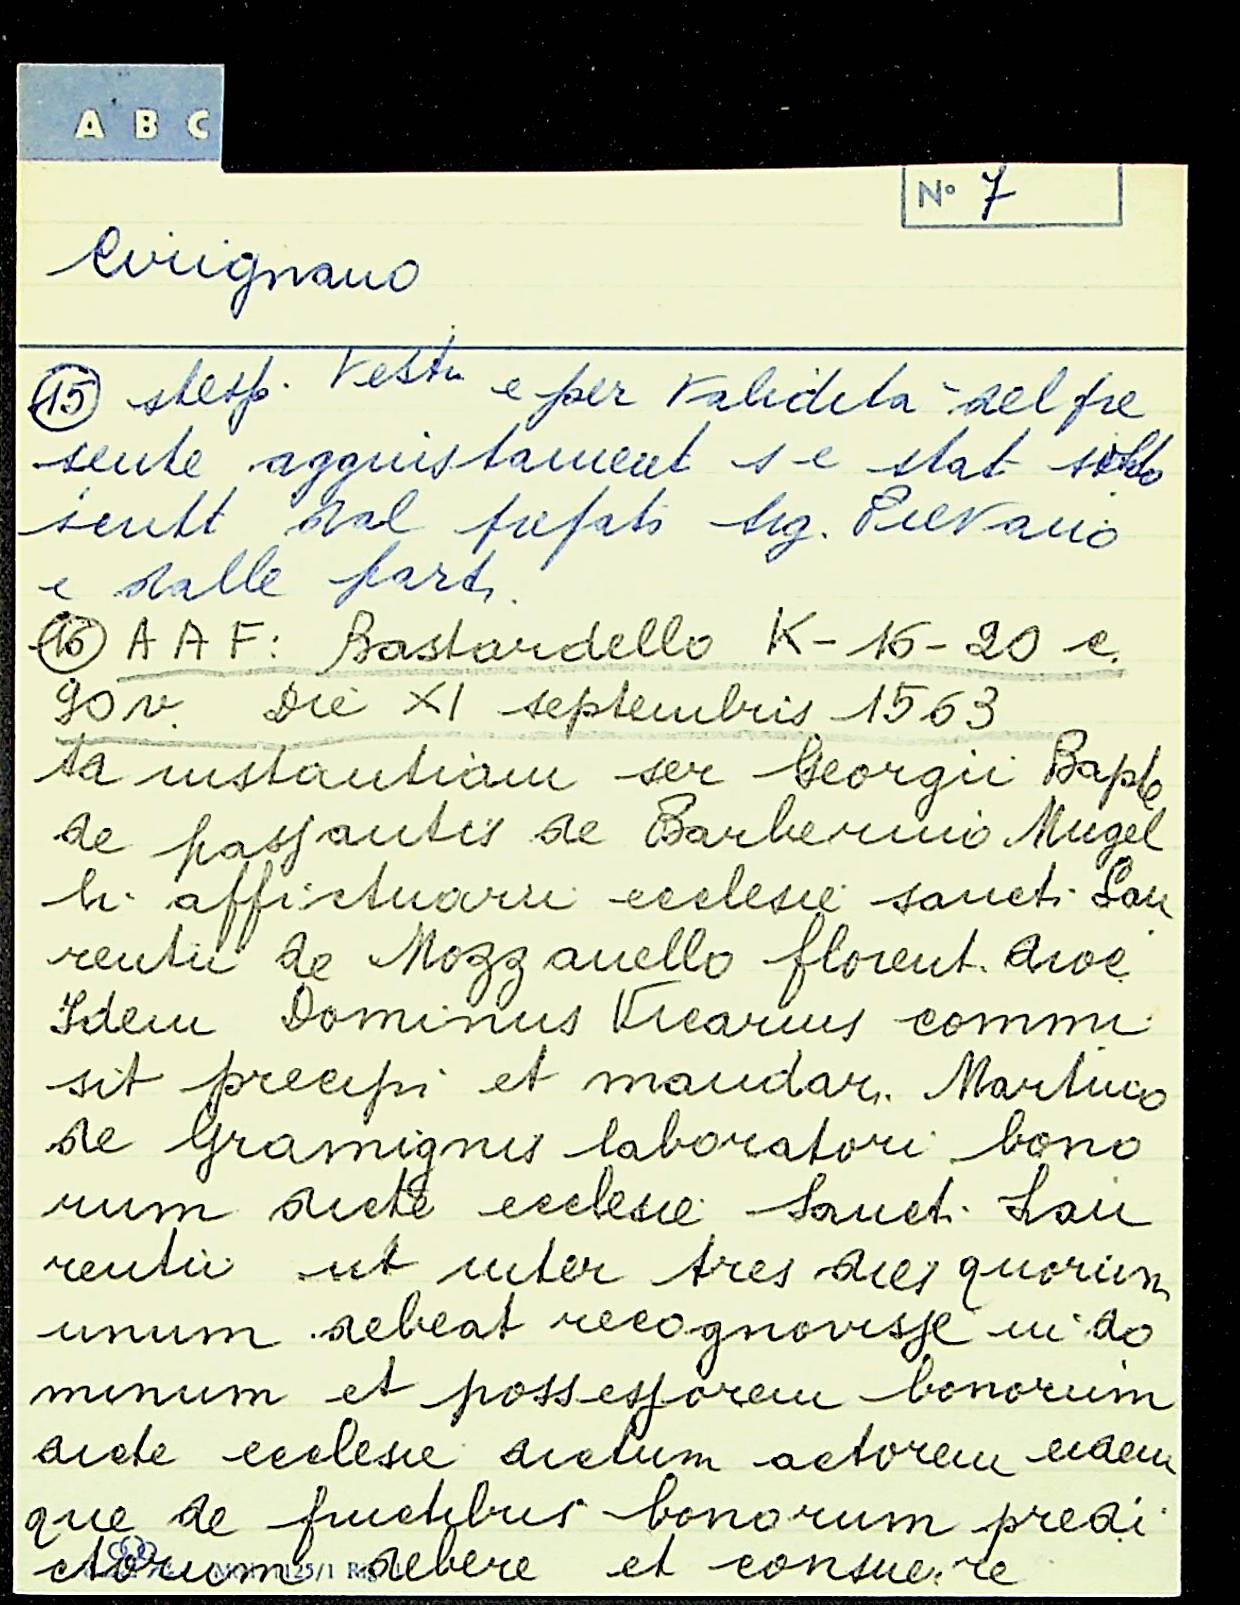 A B C
N° 7
Cirignano
15 stesp. Vestr. e per validita del pre
sente aggiustament s e stat sotto
scritt dal prefato Sig. Pievano
e dalle parti.
16 A A F: Bastardello K-16-20 c.
90 v. Die XI septembris 1563
ta instantiam ser Georgii Bapte
de passantis de Barberino Mugel
li affictuarii ecclesie sancti Lau
rentii de Mozzanello florent. dioc
Idem Dominus Vicarius commi
sit precipi et mandari Martino
de Gramignis laboratori bono
rum dicte ecclesie Sancti Lau
rentii ut inter tres dies quorum
unum debeat recognovisse in do
minum et possessorem bonorum
dicte ecclesie dictum actorem eidem
que de fructibus bonorum predi
ctorum debere et